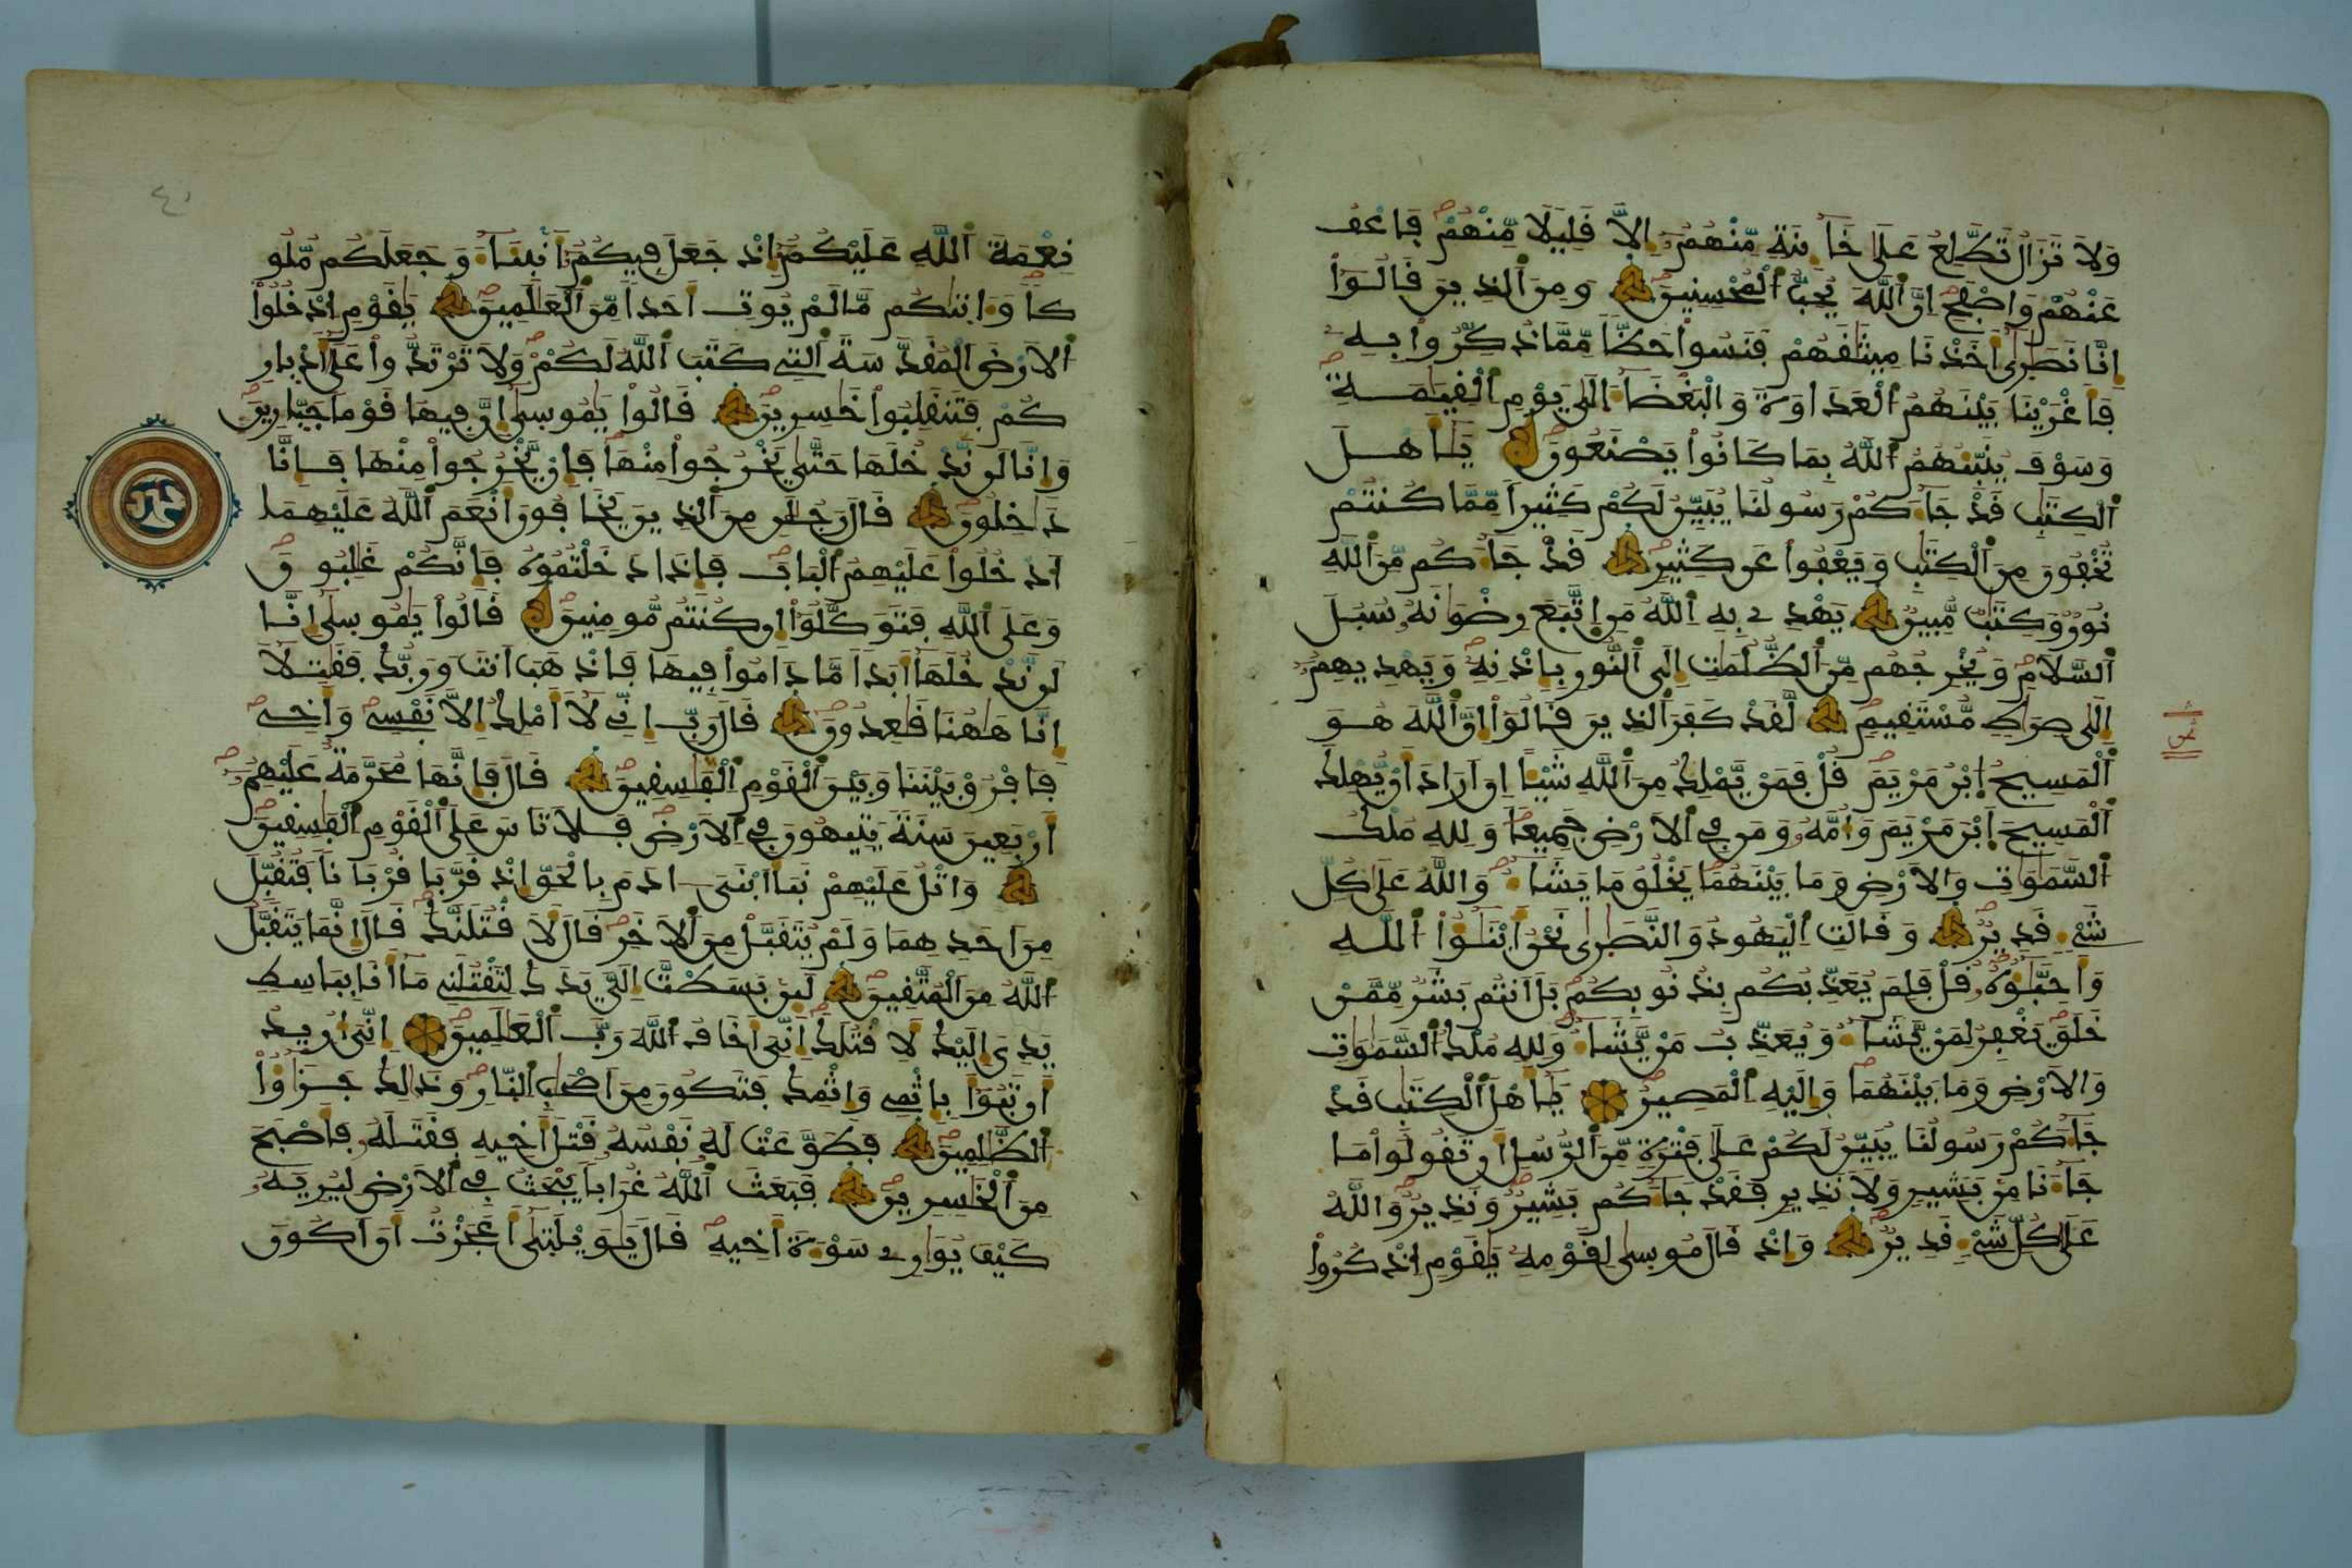 وَلَا تَزَالُ تَطَّلِعُ عَلَىٰ خَآئِنَةٖ مِّنْهُمُۥٓ إِلَّا قَلِيلاٗ مِّنْهُمْ فَاعْفُ
عَنْهُمْ وَاصْفَحِ اِنَّ اَ۬للَّهَ يُحِبُّ اُ۬لْمُحْسِنِينَ وَمِنَ اَ۬لذِينَ قَالُوٓاْ
إِنَّا نَصَٰر۪ىٰٓ أَخَذْنَا مِيثَٰقَهُمْ فَنَسُواْ حَظّاٗ مِّمَّا ذُكِّرُواْ بِهِۦ
فَأَغْرَيْنَا بَيْنَهُمُ اُ۬لْعَدَاوَةَ وَالْبَغْضَآءَ اِلَىٰ يَوْمِ اِ۬لْقِيَٰمَةِ
وَسَوْفَ يُنَبِّئُهُمُ اُ۬للَّهُ بِمَا كَانُواْ يَصْنَعُونَ يَٰٓأَهْلَ
اَ۬لْكِتَٰبِ قَدْ جَآءَكُمْ رَسُولُنَا يُبَيِّنُ لَكُمْ كَثِيراٗ مِّمَّا كُنتُمْ
تُخْفُونَ مِنَ اَ۬لْكِتَٰبِ وَيَعْفُواْ عَن كَثِيرٖ قَدْ جَآءَكُم مِّنَ اَ۬للَّهِ
نُورٞ وَكِتَٰبٞ مُّبِينٞ يَهْدِے بِهِ اِ۬للَّهُ مَنِ اِ۪تَّبَعَ رِضْوَٰنَهُۥ سُبُلَ
اَ۬لسَّلَٰمِ وَيُخْرِجُهُم مِّنَ اَ۬لظُّلُمَٰتِ إِلَى اَ۬لنُّورِ بِإِذْنِهِۦ وَيَهْدِيهِمُۥٓ
إِلَىٰ صِرَٰطٖ مُّسْتَقِيمٖ لَّقَدْ كَفَرَ اَ۬لذِينَ قَالُوٓاْ إِنَّ اَ۬للَّهَ هُوَ
اَ۬لْمَسِيحُ اُ۪بْنُ مَرْيَمَ قُلْ فَمَنْ يَّمْلِكُ مِنَ اَ۬للَّهِ شَيْـٔاً اِنَ اَرَادَ أَنْ يُّهْلِكَ
اَ۬لْمَسِيحَ اَ۪بْنَ مَرْيَمَ وَأُمَّهُۥ وَمَن فِے اِ۬لَارْضِ جَمِيعاٗ وَلِلهِ مُلْكُ
اُ۬لسَّمَٰوَٰتِ وَالَارْضِ وَمَا بَيْنَهُمَا يَخْلُقُ مَا يَشَآءُ وَاللَّهُ عَلَىٰ كُلِّ
شَےْءٖ قَدِيرٞ وَقَالَتِ اِ۬لْيَهُودُ وَالنَّصَٰر۪ىٰ نَحْنُ أَبْنَٰٓؤُاْ اُ۬للَّهِ
وَأَحِبَّٰٓؤُهُۥ قُلْ فَلِمَ يُعَذِّبُكُم بِذُنُوبِكُم بَلَ اَنتُم بَشَرٞ مِّمَّنْ
خَلَقَ يَغْفِرُ لِمَنْ يَّشَآءُ وَيُعَذِّبُ مَنْ يَّشَآءُ وَلِلهِ مُلْكُ اُ۬لسَّمَٰوَٰتِ
وَالَارْضِ وَمَا بَيْنَهُمَا وَإِلَيْهِ اِ۬لْمَصِيرُ يَٰٓأَهْلَ اَ۬لْكِتَٰبِ قَدْ
جَآءَكُمْ رَسُولُنَا يُبَيِّنُ لَكُمْ عَلَىٰ فَتْرَةٖ مِّنَ اَ۬لرُّسُلِ أَن تَقُولُواْ مَا
جَآءَنَا مِنۢ بَشِيرٖ وَلَا نَذِيرٖ فَقَدْ جَآءَكُم بَشِيرٞ وَنَذِيرٞ وَاللَّهُ
عَلَىٰ كُلِّ شَےْءٖ قَدِيرٞ وَإِذْ قَالَ مُوس۪ىٰ لِقَوْمِهِۦ يَٰقَوْمِ اِ۟ذْكُرُواْ
ثمن
نِعْمَةَ اَ۬للَّهِ عَلَيْكُمُۥٓ إِذْ جَعَلَ فِيكُمُۥٓ أَنۢبِيَآءَ وَجَعَلَكُم مُّلُو
كاٗ وَءَات۪يٰكُم مَّا لَمْ يُوتِ أَحَداٗ مِّنَ اَ۬لْعَٰلَمِينَ يَٰقَوْمِ اِ۟دْخُلُواْ
اُ۬لَارْضَ اَ۬لْمُقَدَّسَةَ اَ۬لتِے كَتَبَ اَ۬للَّهُ لَكُمْ وَلَا تَرْتَدُّواْ عَلَىٰٓ أَدْبٰ۪رِ
كُمْ فَتَنقَلِبُواْ خَٰسِرِينَ قَالُواْ يَٰمُوس۪ىٰٓ إِنَّ فِيهَا قَوْماٗ جَبّ۪ارِينَ
وَإِنَّا لَن نَّدْخُلَهَا حَتَّىٰ يَخْرُجُواْ مِنْهَا فَإِنْ يَّخْرُجُواْ مِنْهَا فَإِنَّا
دَٰخِلُونَ قَالَ رَجُلَٰنِ مِنَ اَ۬لذِينَ يَخَافُونَ أَنْعَمَ اَ۬للَّهُ عَلَيْهِمَا
اَ۟دْخُلُواْ عَلَيْهِمُ اُ۬لْبَابَ فَإِذَا دَخَلْتُمُوهُ فَإِنَّكُمْ غَٰلِبُونَ
وَعَلَى اَ۬للَّهِ فَتَوَكَّلُوٓاْ إِن كُنتُم مُّومِنِينَ قَالُواْ يَٰمُوس۪ىٰٓ إِنَّا
لَن نَّدْخُلَهَآ أَبَداٗ مَّا دَامُواْ فِيهَا فَاذْهَبَ اَنتَ وَرَبُّكَ فَقَٰتِلَآ
إِنَّا هَٰهُنَا قَٰعِدُونَ قَالَ رَبِّ إِنِّے لَآ أَمْلِكُ إِلَّا نَفْسِے وَأَخِے
فَافْرُقْ بَيْنَنَا وَبَيْنَ اَ۬لْقَوْمِ اِ۬لْفَٰسِقِينَ قَالَ فَإِنَّهَا مُحَرَّمَةٌ عَلَيْهِمُۥٓ
أَرْبَعِينَ سَنَةٗ يَتِيهُونَ فِے اِ۬لَارْضِ فَلَا تَاسَ عَلَى اَ۬لْقَوْمِ اِ۬لْفَٰسِقِينَ
وَاتْلُ عَلَيْهِمْ نَبَأَ اَ۪بْنَےَ ءَادَمَ بِالْحَقِّ إِذْ قَرَّبَا قُرْبَاناٗ فَتُقُبِّلَ
مِنَ اَحَدِهِمَا وَلَمْ يُتَقَبَّلْ مِنَ اَ۬لَاخَرِ قَالَ لَأَقْتُلَنَّكَ قَالَ إِنَّمَا يَتَقَبَّلُ
اُ۬للَّهُ مِنَ اَ۬لْمُتَّقِينَ لَئِنۢ بَسَطتَّ إِلَيَّ يَدَكَ لِتَقْتُلَنِے مَآ أَنَا بِبَاسِطٖ
يَدِيَ إِلَيْكَ لَأَقْتُلَكَ إِنِّيَ أَخَافُ اُ۬للَّهَ رَبَّ اَ۬لْعَٰلَمِينَ إِنِّيَ أُرِيدُ
أَن تَبُوٓأَ بِإِثْمِے وَإِثْمِكَ فَتَكُونَ مِنَ اَصْحَٰبِ اِ۬لنّ۪ارِ وَذَٰلِكَ جَزَٰٓؤُاْ
اُ۬لظَّٰلِمِينَ فَطَوَّعَتْ لَهُۥ نَفْسُهُۥ قَتْلَ أَخِيهِ فَقَتَلَهُۥ فَأَصْبَحَ
مِنَ اَ۬لْخَٰسِرِينَ فَبَعَثَ اَ۬للَّهُ غُرَاباٗ يَبْحَثُ فِے اِ۬لَارْضِ لِيُرِيَهُۥ
كَيْفَ يُوَٰرِے سَوْءَةَ أَخِيهِ قَالَ يَٰوَيْلَت۪ىٰٓ أَعَجَزْتُ أَنَ اَكُونَ